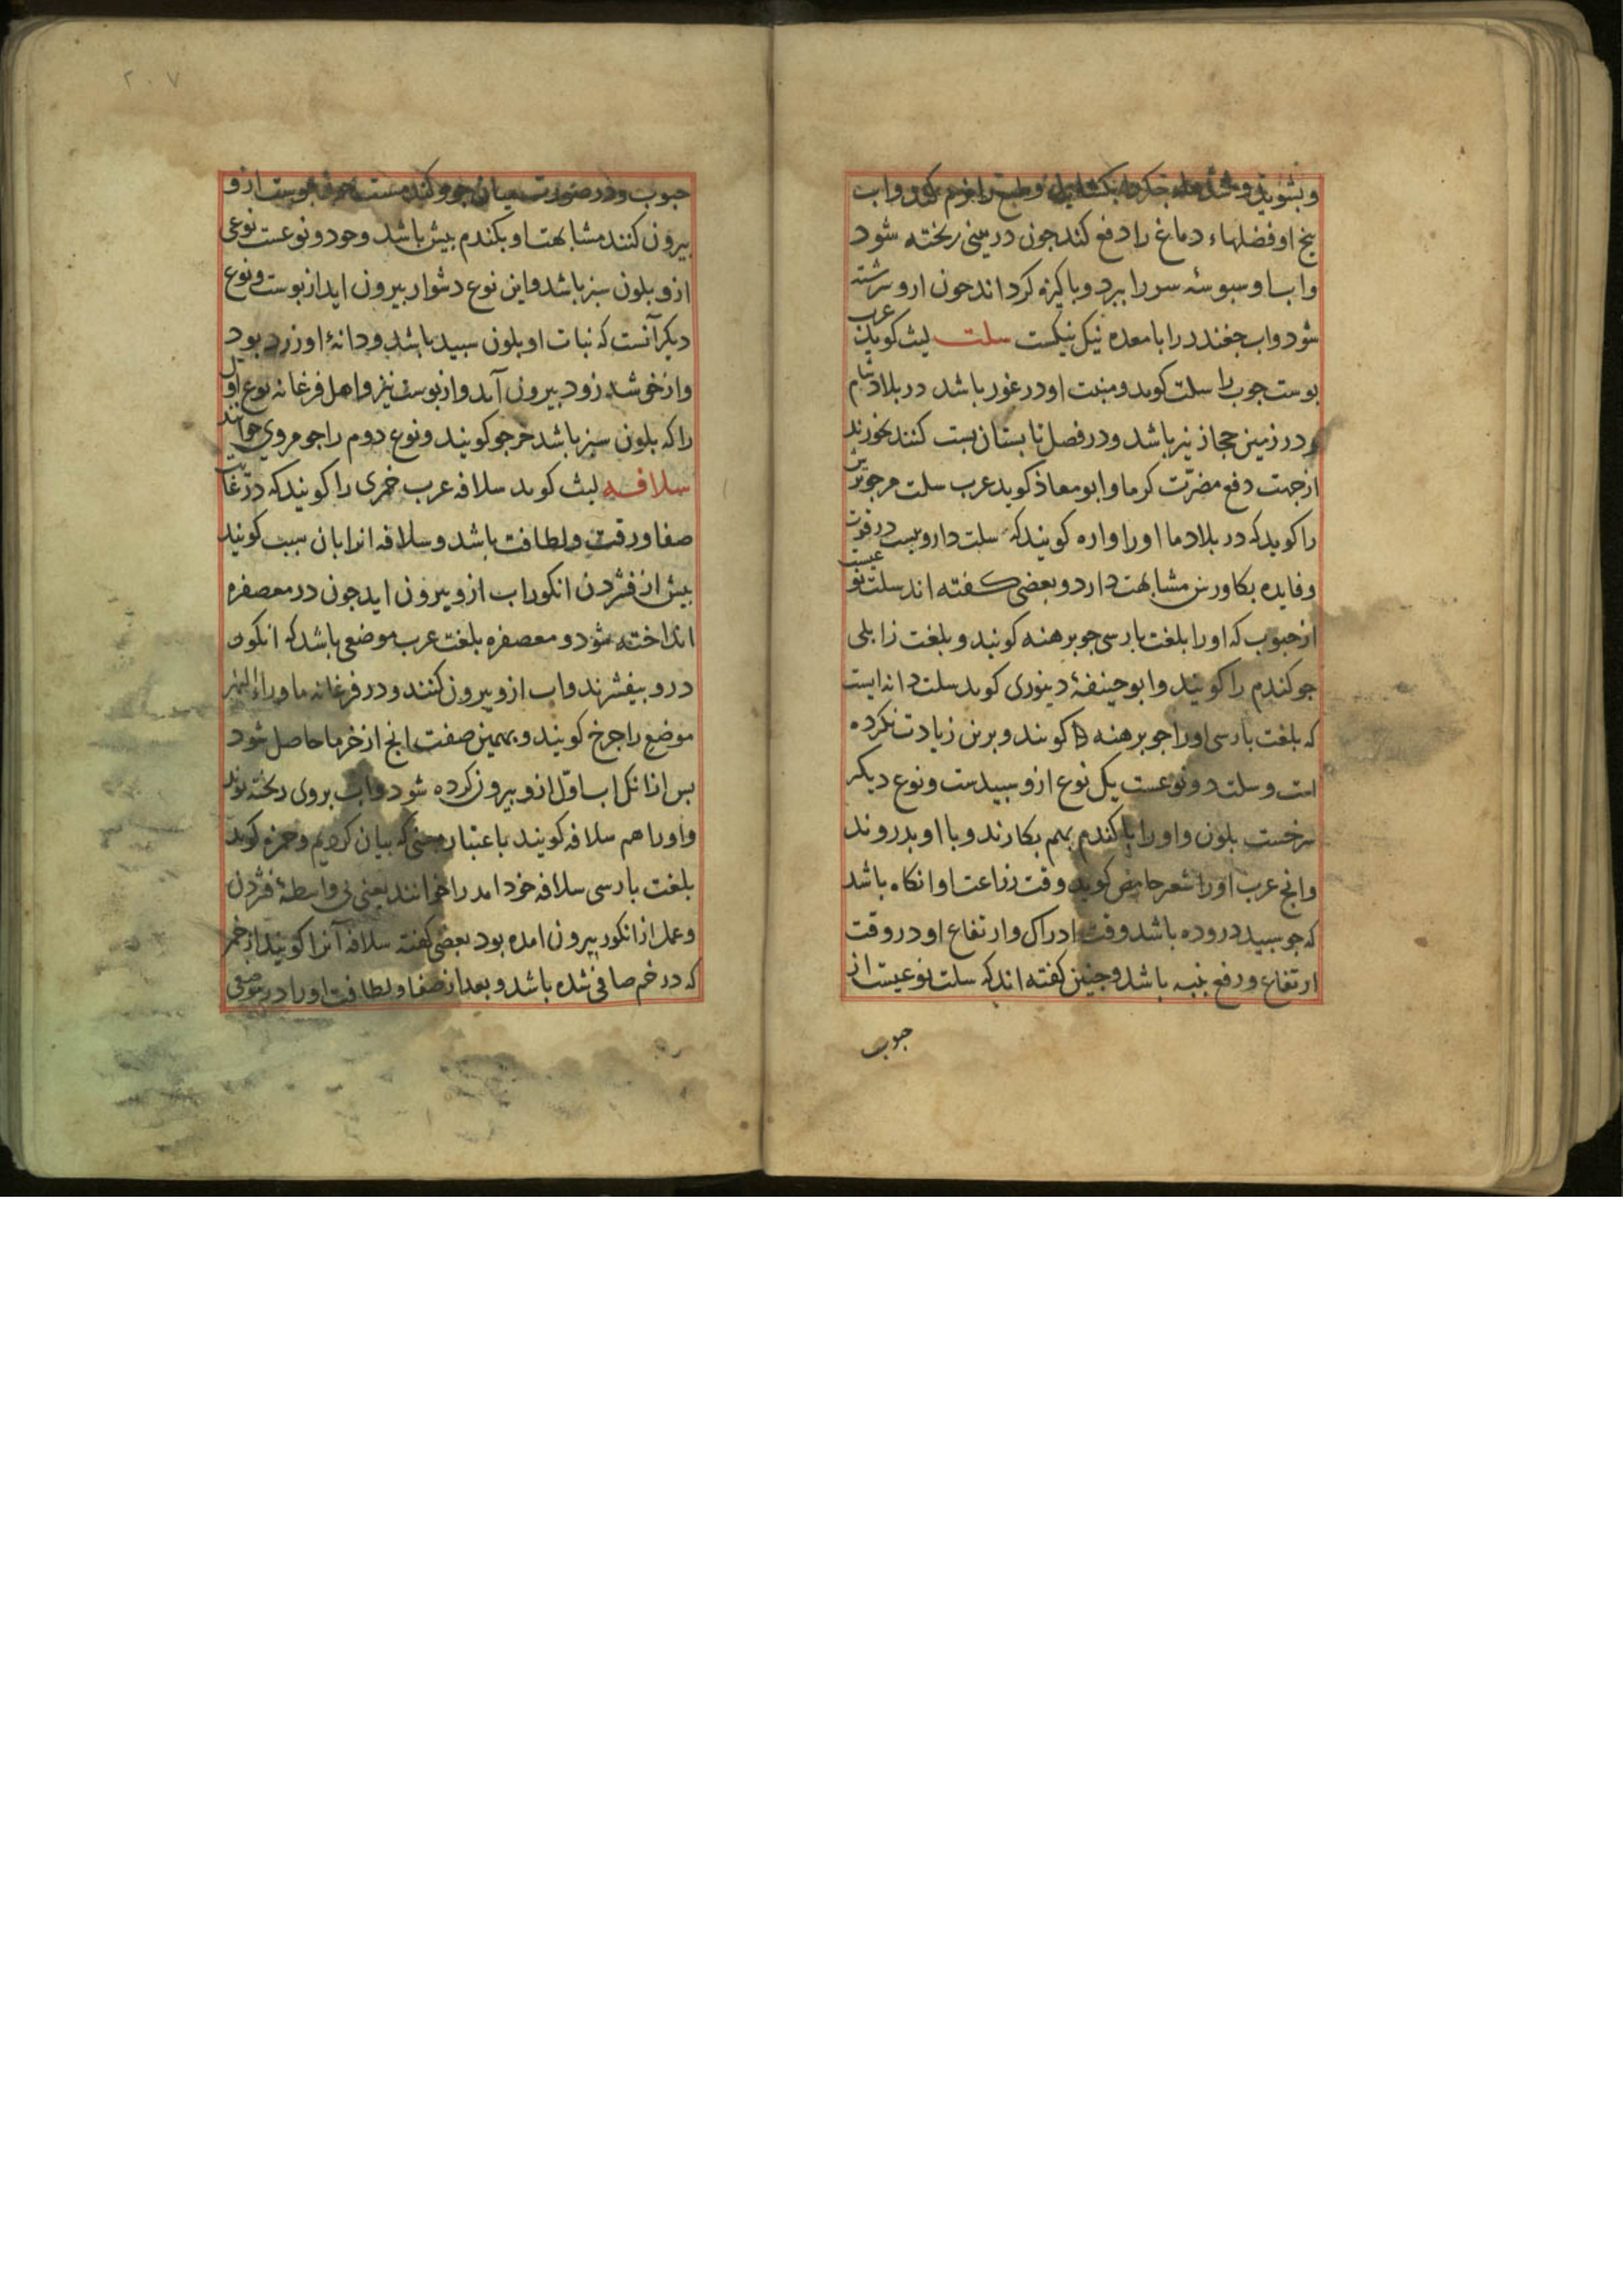 و بشوید و سده جکر را بکشاید و طبع را نرم کند و اب
بنج او فضلهاء دماغ را دفع کند جون در بینی ریخته شود
و اب او سبوسه سر را ببرد و باکیزه کرداند جون ارو سرشته
شود و اب جغندر را با معده نیک نیکست سلت لیث کوید عرب
بوست جوب را سلت کوید و منبت او در غور باشد در بلاد شام
و در زمین حجاز نیز باشد و در فصل تابستان بست کنند بخورند
از جهت دفع مضرت کرما و ابو معاذ کوید عرب سلت مر جو ترش
را کوید که در بلاد ما او را واره کویند که سلت داروییست در قوت
و فایده بکاورس مشابهت دارد و بعضی کفته اند سلت نوعیست
از حبوب که او را بلغت بارسی جو برهنه کویند و بلغت زابلی
جو کندم را کویند و ابو حنیفهٔ دینوری کوید سلت دانه ایست
که بلغت بارسی او را جو برهنه کویند و برین زیادت نکرده
است و سلت دو نوعست یک نوع ازو سبیدست و نوع دیکر
سرخست بلون و او را با کندم بهم بکارند و با او بدروند
و انج عرب او را شعر حامض کوید وقت زراعت او انکاه باشد
که جو سبید دروده باشد و وقت ادراک و ارتفاع او در وقت
ارتفاع و رفع بنبه باشد و جنین کفته اند که سلت نوعیست از
حبوب
۲۰۷
حبوب و در صورت میان جو و کندمست جون بوست ازو
بیرون کنند مشابهت او بکندم بیش باشد و جو دو نوعست نوعی
ازو بلون سبز باشد و این نوع دشوار بیرون اید از بوست و نوع
دیکر آنست که نبات او بلون سبید باشد و دانهٔ او زرد بود
و از خوشه زود بیرون آید و از بوست نیز و اهل فرغانه نوع اول
را که بلون سبز باشد خر جو کویند و نوع دوم را جو مروی خوانند
سلافه لیث کوید سلافه عرب خمری را کویند که در غایت
صفا و رقت و لطافت باشد و سلافه انرا بان سبب کویند
بیش از فشردن انکور اب ازو بیرون اید جون در معصفره
انداخته شود و معصفره بلغت عرب موضعی باشد که انکور
درو بیفشرند و اب ازو بیرون کنند و در فرغانه ماوراء النهر
موضع را جرخ کویند و بهمین صفت انج از خرما حاصل شود
بس ازانک اب اول ازو بیرون کرده شود و اب بروی ریخته بوند
و او را هم سلافه کویند باعتبار معنی که بیان کردیم و حمزه کوید
بلغت بارسی سلافه خود امد را خوانند یعنی بی واسطهٔ فشردن
و عمل از انکور بیرون امده بود بعضی کفته سلافه آنرا کویند از خمر
که در خم صافی شده باشد و بعد از صفا و لطافت او را در موضعی